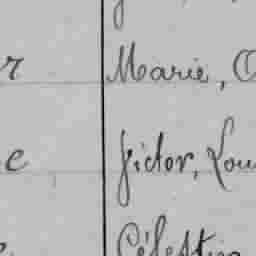 r Marie,
e Victor, Lou
Célestin